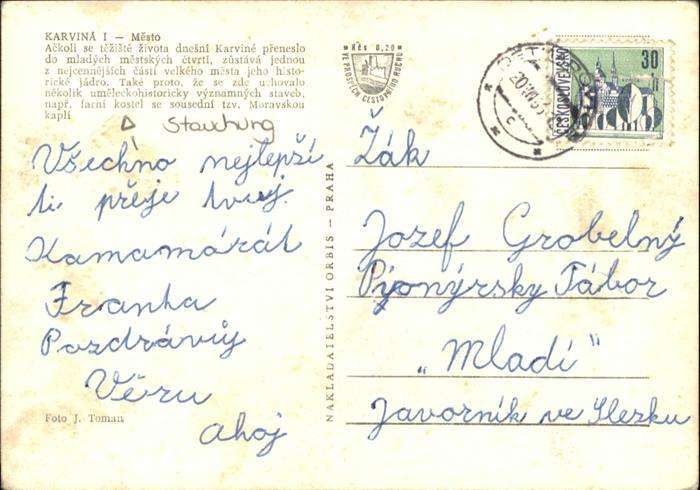 KARVINÁ I — Město
Ačkoli se těžiště života dnešní Karviné přeneslo
do mladých městských čtvrtí, zůstává jednou
z nejcennějších částí velkého města jeho histo-
rické jádro. Také proto, že se zde uchovalo
několik uměleckohistoricky významných staveb,
např. farní kostel se sousední tzv. Moravskou
kaplí
Stauchung
Všechno nejlepší
ti přeje tvuj
Kamamárát
Franta
Pozdrávůj
Věru
Ahoj
Foto J. Toman
NAKLADATELSTVÍ ORBIS — PRAHA
Kčs 0,20
VE PROSPĚCH CESTOVNÍHO RUCHU
ČESKOSLOVENSKO
30 h
Žák
Jozef Grobelný
Pyonýrsky Tábor
„Mladí"
Javorník ve Slezku